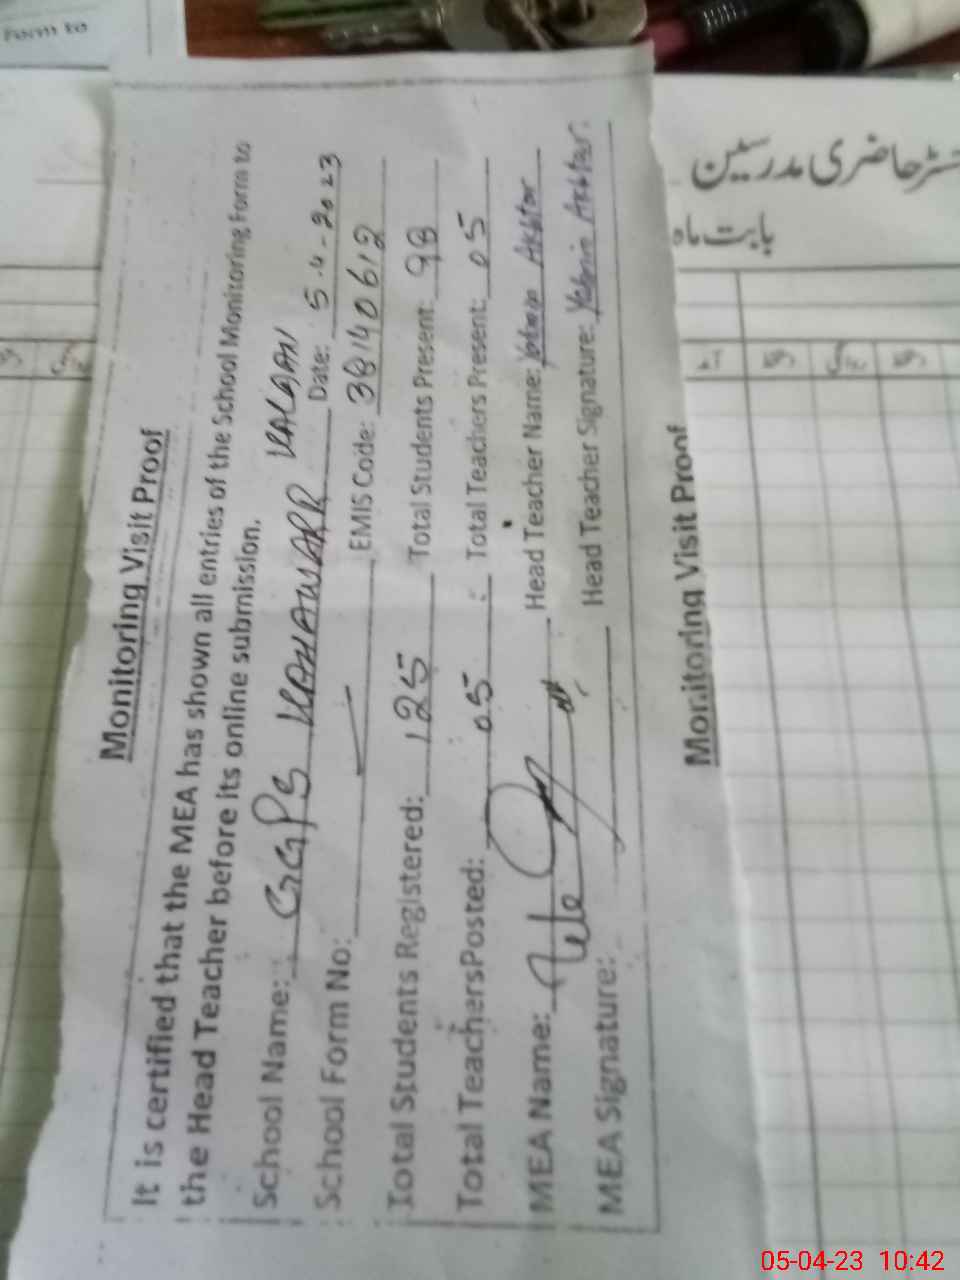 Form to
Monitoring Visit Proof
It is certified that the MEA has shown all entries of the School Monitoring Form to
the Head Teacher before its online submission.
School Name: GGPS KAHAWARR KALAAN Date: 5-4-2023
School Form No: EMIS Code: 38140612
Total Students Registered: 125 Total Students Present: 98
Total TeachersPosted: 05 Total Teachers Present: 05
MEA Name: Head Teacher Name: Akhtar
MEA Signature: Head Teacher Signature: Akhtar.
Monitoring Visit Proof
حاضری مدرسین
بابت ماہ
آمد دستخط روانگی دستخط
روانگی
05-04-23 10:42